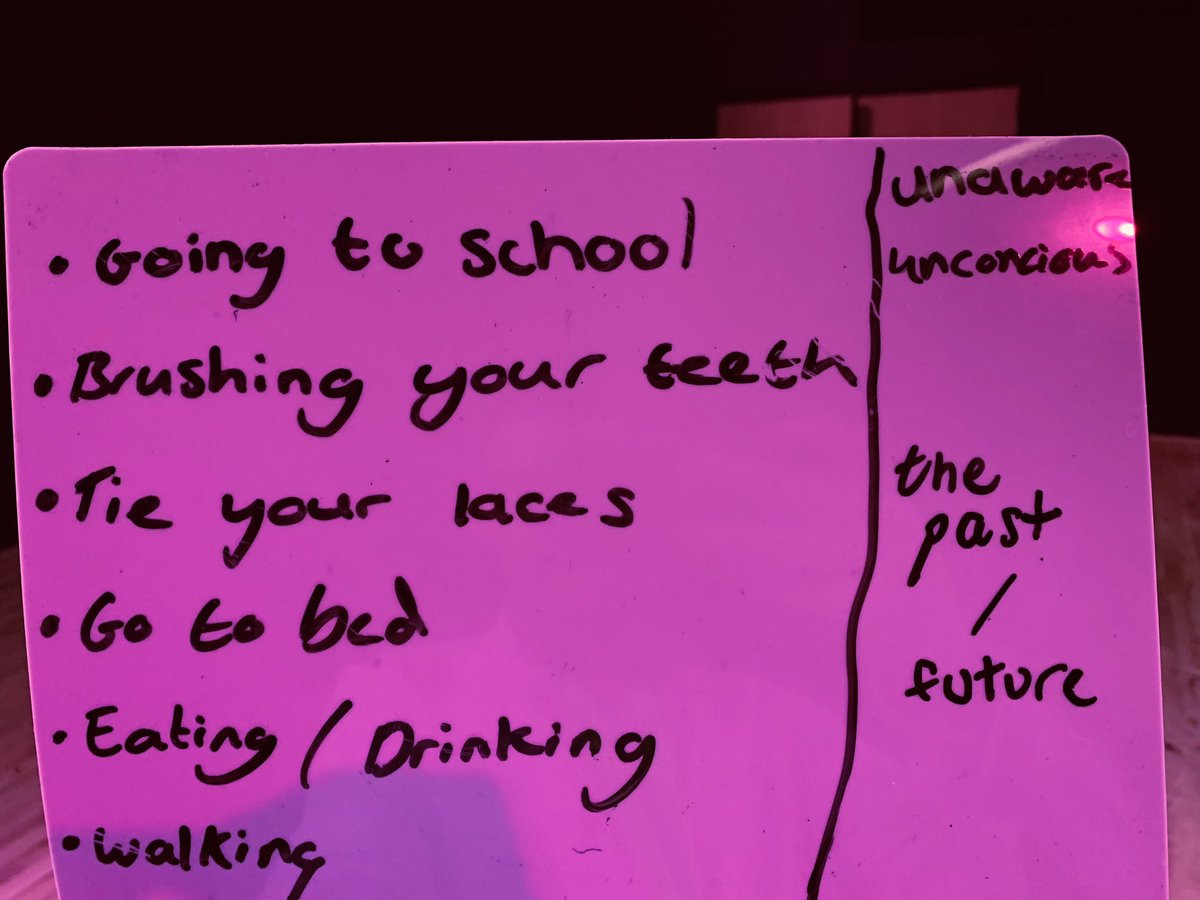 • Going to school
• Brushing your teeth
• Tie your laces
• Go to bed
• Eating / Drinking
• walking
unaware
unconcious
the
past
/
future